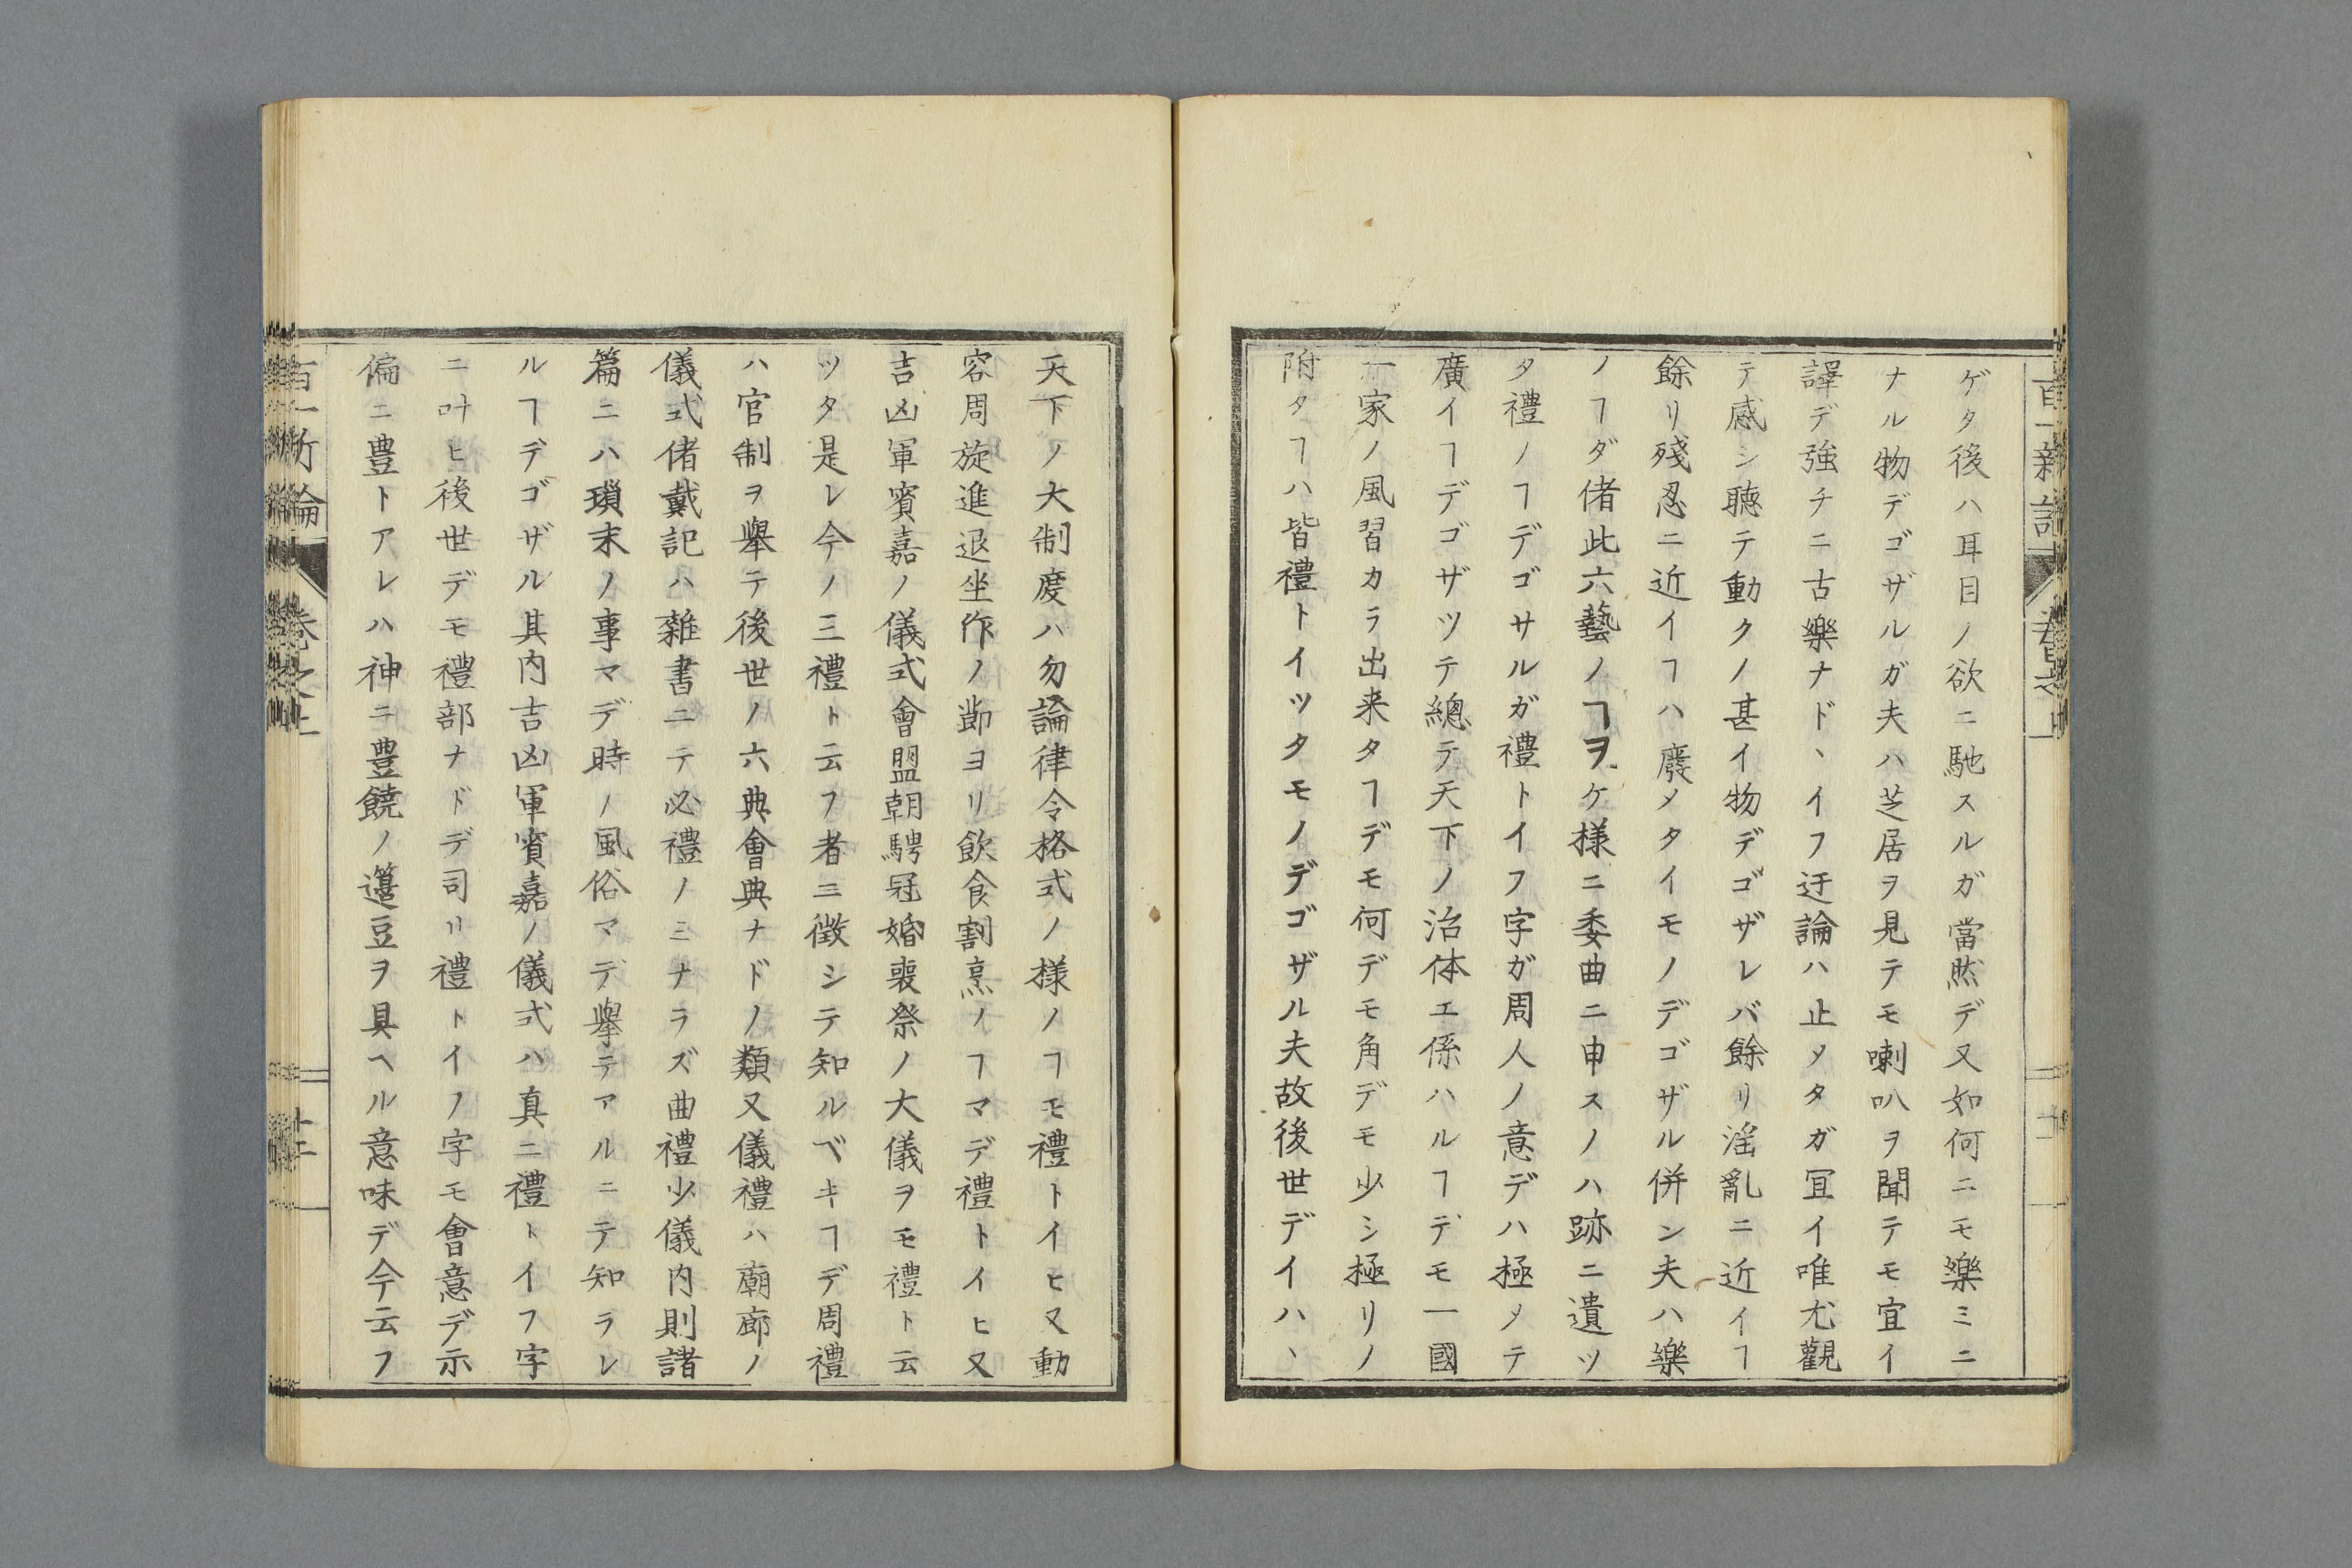 百一新論
ゲタ後ハ耳目ノ欲ニ馳スルガ當然デ又如何ニモ樂ミニ
ナル物デゴザルガ夫ハ芝居ヲ見テモ喇叭ヲ聞テモ宜イ
譯デ強チニ古樂ナドヽイフ迂論ハ止メタガ冝イ唯尤觀
テ感シ聴テ動クノ甚イ物デゴザレバ餘リ滛亂ニ近イヿ
餘リ殘忍ニ近イヿハ廢メタイモノデゴザル併ン夫ハ樂
ノヿダ偖此六藝ノヿヲケ様ニ委曲ニ申スノハ跡ニ遺ツ
タ禮ノヿデゴサルガ禮トイフ字ガ周人ノ意デハ極メテ
廣イヿデゴザツテ總テ天下ノ治体エ係ハルヿデモ一國
一家ノ風習カラ出来タヿデモ何デモ角デモ少シ極リノ
附タヿハ皆禮トイツタモノデゴザル夫故後世デイハヽ
天下ノ大制度ハ勿論律令格式ノ様ノヿモ禮トイヒ又動
容周旋進退坐作ノ節ヨリ飲食割烹ノヿマデ禮トイヒ又
吉凶軍賓嘉ノ儀式會盟朝騁冠婚喪祭ノ大儀ヲモ禮ト云
ツタ是レ今ノ三禮ト云フ者ニ徴シテ知ルベキヿデ周禮
ハ官制ヲ擧テ後世ノ六典會典ナドノ類又儀禮ハ廟廊ノ
儀式偖戴記ハ雜書ニテ必禮ノミナラズ曲禮少儀内則諸
篇ニハ瑣末ノ事マデ時ノ風俗マデ擧テアルニテ知ラレ
ルヿデゴザル其内吉凶軍賓嘉ノ儀式ハ真ニ禮トイフ字
ニ叶ヒ後世デモ禮部ナドデ司リ禮トイフ字モ會意デ示
偏ニ豊トアレハ神ニ豊饒ノ籩豆ヲ具ヘル意味デ今云フ
百一新論
卷之上